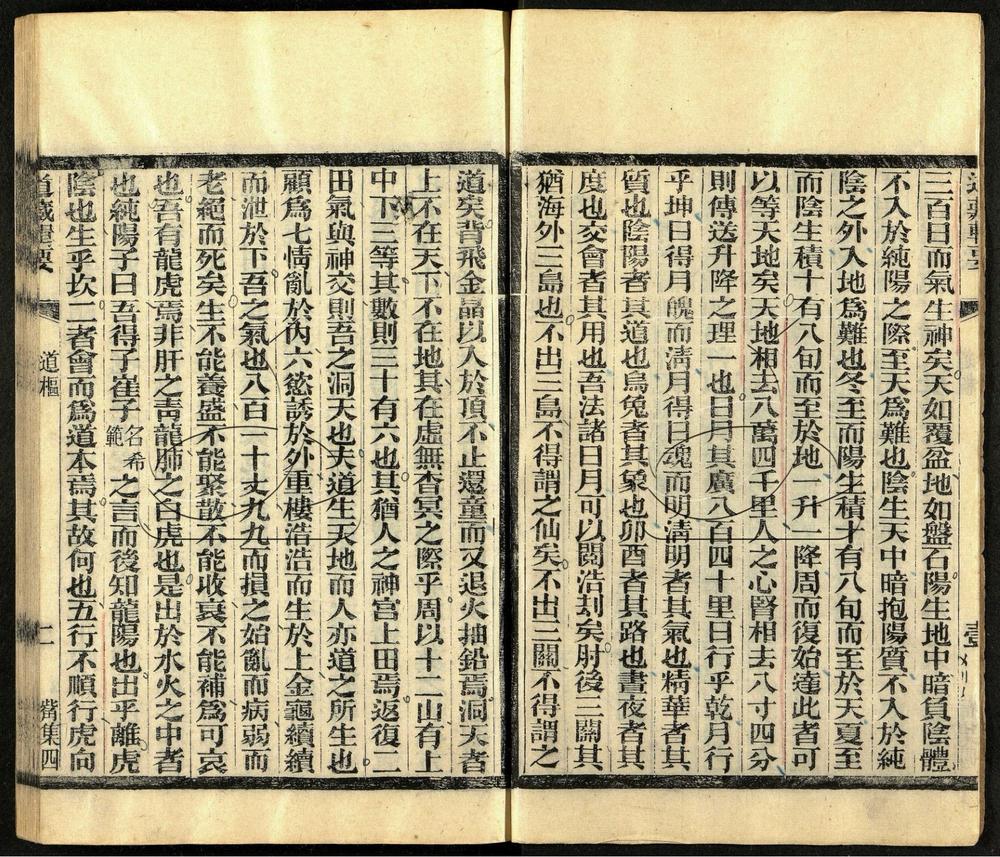 三百日而氣生神矣天如覆盆地如盤石陽生地中暗負陰體
不入於純陽之際至天為難也陰生天中暗抱陽質不入於純
陰之外入地為難也冬至而陽生積才有八旬而至於天夏至
而陰生積十有八旬而至於地一升一降周而復始達此者可
以等天地矣天地相去八萬四千里人之心腎相去八寸四分
則傳送升降之理一也日月其廣八百四十里日行乎乾月行
乎坤日得月魄而淸月得日魂而明淸明者其氣也精華者其
質也陰陽者其道也烏兔者其象也卯酉者其路也晝夜者其
度也交會者其用也吾法諸日月可以閱浩刦矣肘後三關其
猶海外三島也不出三島不得謂之仙矣不出三關不得謂之
道矣背飛金晶以入於頂不止還童而又退火抽鉛焉洞天者
上不在天下不在地其在虛無杳冥之際乎周以十二山有上
中下三等其數則三十有六也其猶人之神宮上田焉返復二
田氣與神交則吾之洞天也夫道生天地而人亦道之所生也
顧爲七情亂於內六慾誘於外重樓浩浩而生於上金龜續續
而泄於下吾之氣也八百一十丈九九而損之始亂而病弱而
老絕而死矣生不能養盛不能聚散不能收衰不能補爲可哀
也吾有龍虎焉非肝之靑龍肺之白虎也是出於水火之中者
也純陽子曰吾得子崔子名希範之言而後知龍陽也出乎離虎
陰也生乎坎二者會而爲道本焉其故何也五行不順行虎向
道藏輯要
道樞
二
觜集四